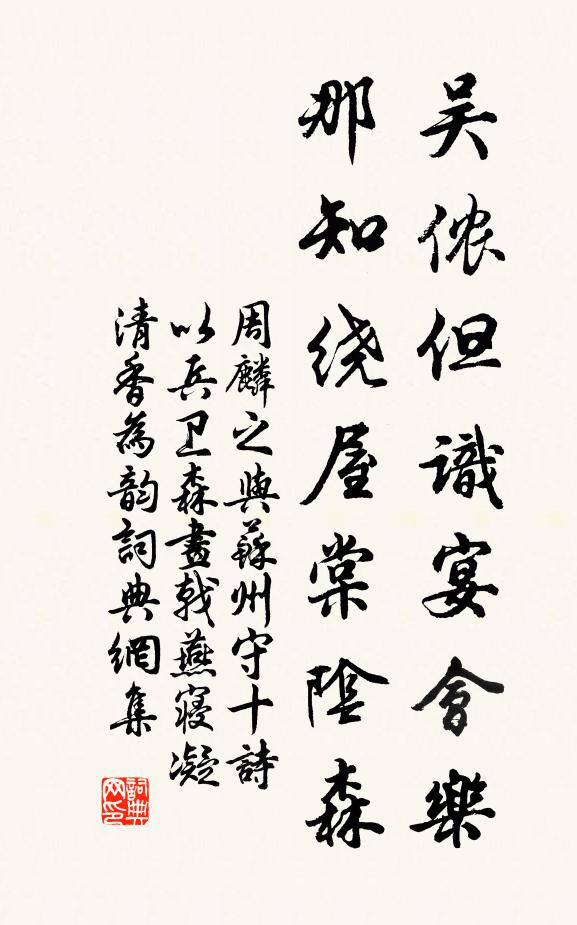 吴侬但識宴會樂
那知绕屋棠陰森
周麟之與蘇州守十詩
以兵卫森畫戟燕寢凝
清香為韵詞典網集
詞典网印